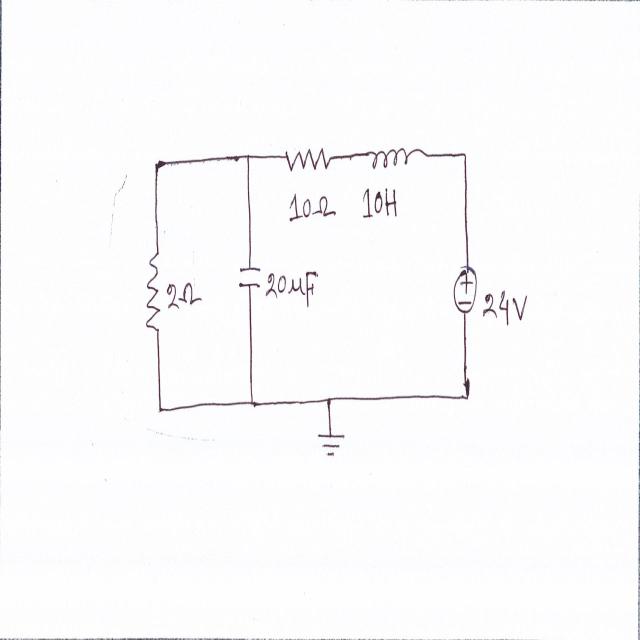 10Ω 10H
2Ω
20μF
+
24V
−